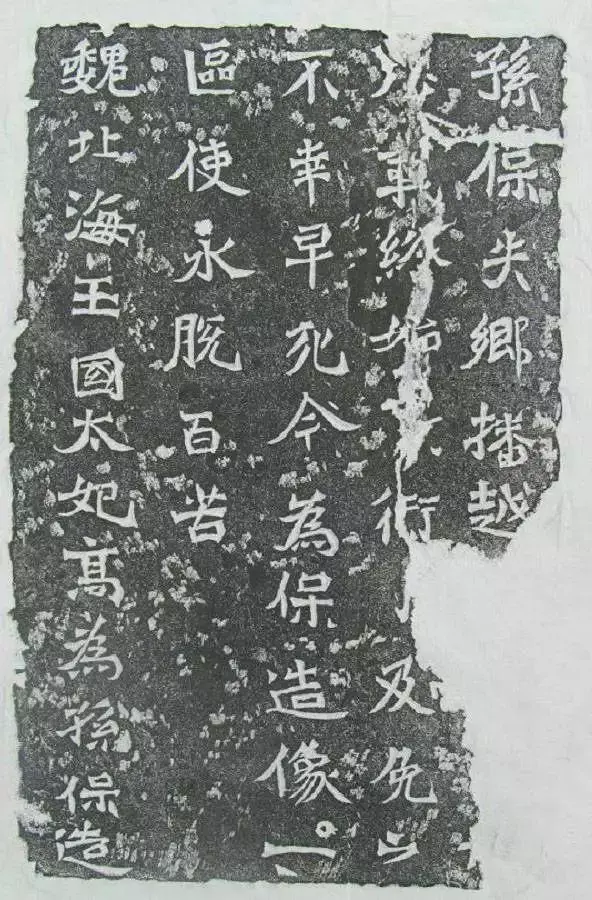 孫保失鄉播越
衍及免
不幸早死今為保造像一
區使永脫百苦
魏北海王國太妃高為孫保造